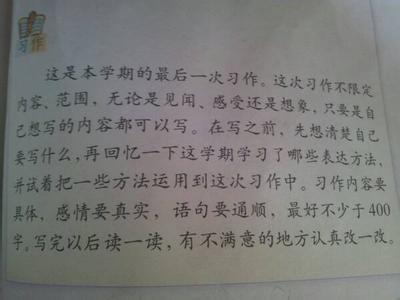 习作
这是本学期的最后一次习作。这次习作不限定
内容、范围，无论是见闻、感受还是想象，只要是自
己想写的内容都可以写。在写之前，先想清楚自己
要写什么，再回忆一下这学期学习了哪些表达方法，
并试着把一些方法运用到这次习作中。习作内容要
具体，感情要真实，语句要通顺，最好不少于400
字。写完以后读一读，有不满意的地方认真改一改。